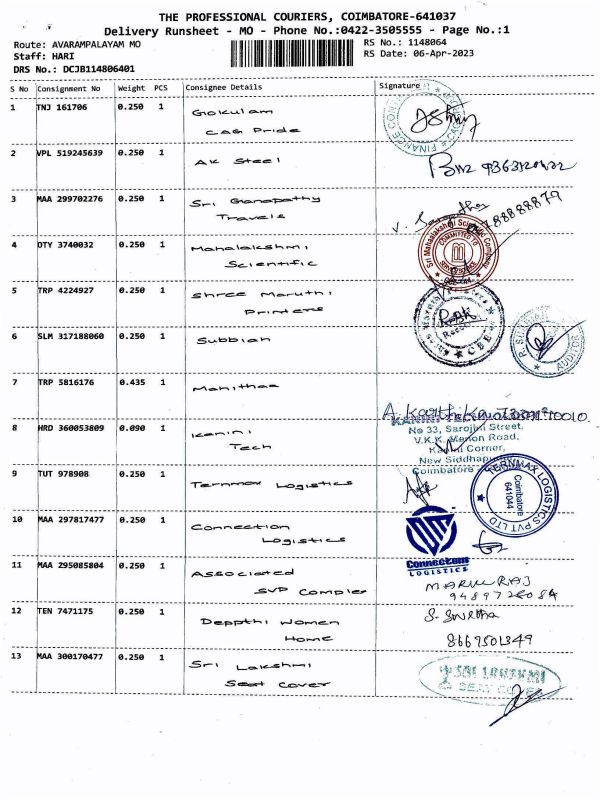 THE PROFESSIONAL COURIERS, COIMBATORE-641037
Delivery Runsheet - MO - Phone No.:0422-3505555 - Page No.:1
Route: AVARAMPALAYAM MO
RS No.: 1148064
Staff: HARI
RS Date: 06-Apr-2023
DRS No.: DCJB114806401
S No Consignment No Weight PCS Consignee Details Signature
1 TNJ 161706 0.250 1 Gokulam
CAG Pride
FINANCE
2 VPL 519245639 0.250 1 AK Steel
3 MAA 299702276 0.250 1 Sri Ganapathy
Travels
4 OTY 3740032 0.250 1 Mahalakshmi
Scientific
Sri Mahaalakshmi Scientific Company
COMMITTED TO
5 TRP 4224927 0.250 1 Shree Maruthi
Printers
CBE
6 SLM 317188060 0.250 1 Subbiah
AUDITOR
7 TRP 5816176 0.435 1 Manithaa
8 HRD 360053809 0.090 1 Kanini
Tech
No 33, Sarojini Street,
V.K.K. Menon Road,
Kanini Corner,
New Siddhapudur
Coimbatore
9 TUT 978908 0.250 1 Ternmax Logistics
TERNMAX LOGISTICS PVT LTD
Coimbatore
641044
10 MAA 297817477 0.250 1 Connection
Logistics
Connection
LOGISTICS
11 MAA 295085804 0.250 1 Associated
SVP Complex
12 TEN 7471175 0.250 1 Deppthi Women
Home
8667501349
13 MAA 300170477 0.250 1 Sri Lakshmi
Seat Cover
SRI LAKSHMI
SEAT COVER